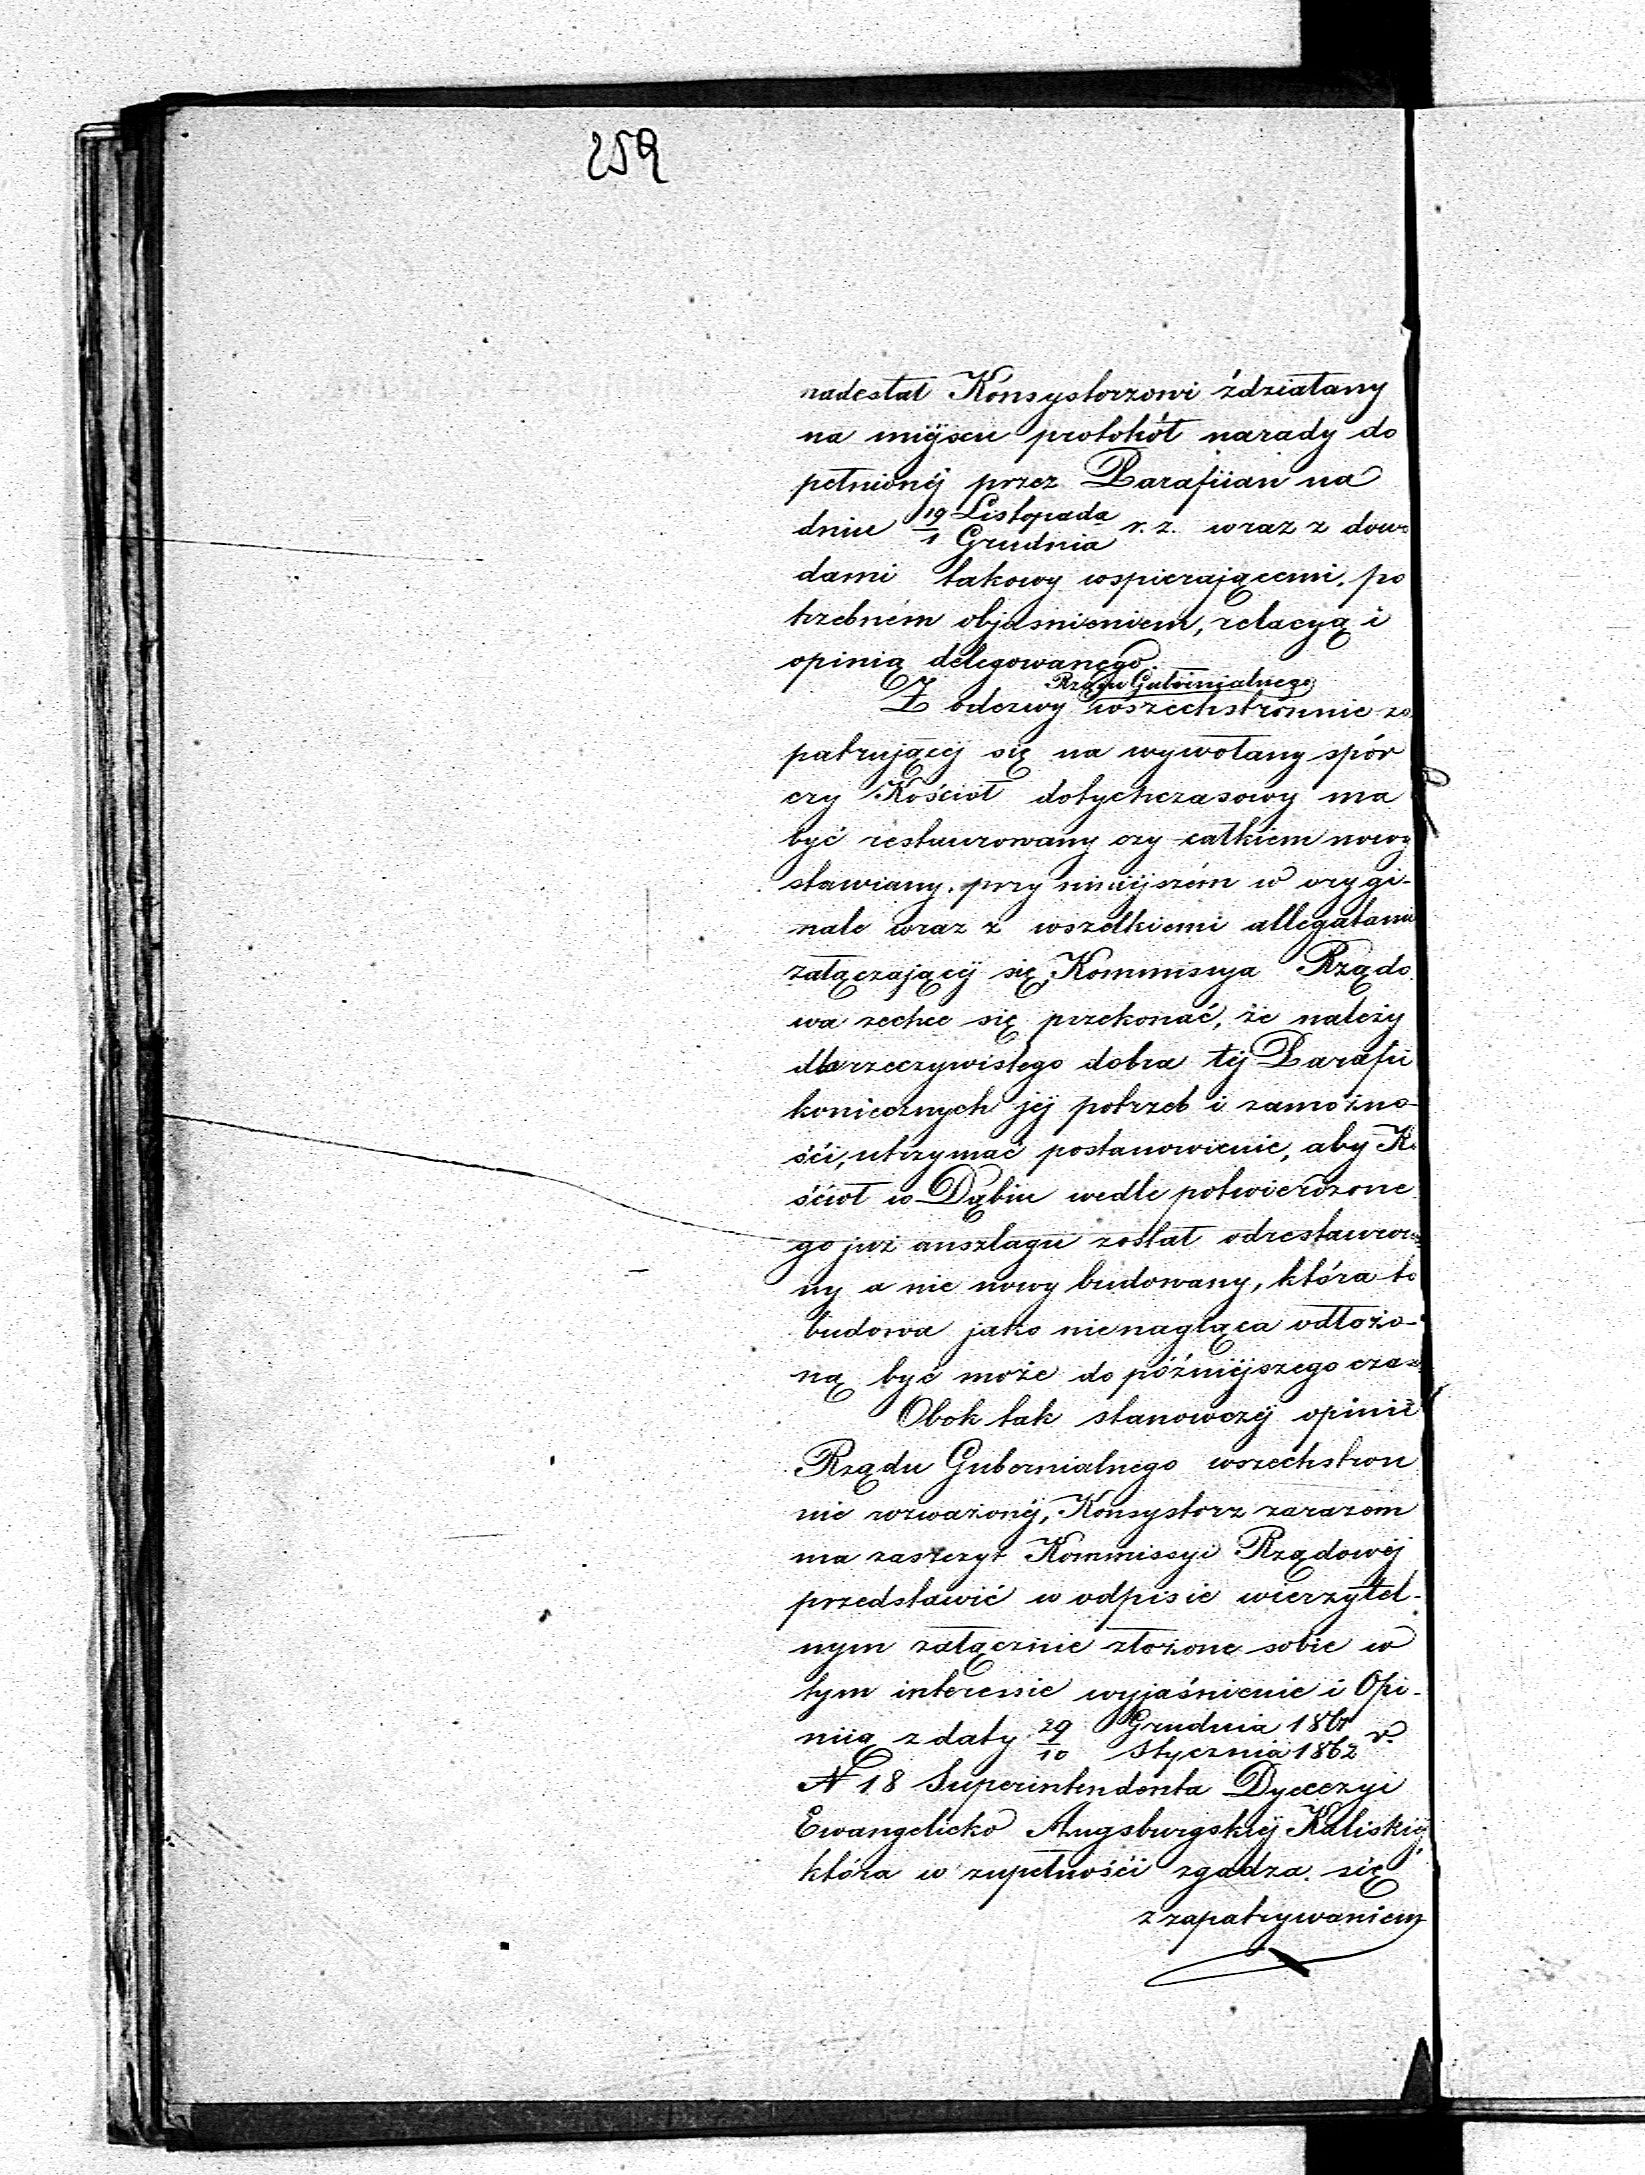 259
nadesłał Konsystorzowi ździałany
na miejscu protokół narady do
pełnionéj przez Parafiian na
dniu 19 Listopada / 1 Grudnia r. z. wraz z dowo
dami takowy wspierającemi, po
trzebném objaśnieniem, relacyą i
opinią delegowanego.
Rządu Gubernialnego
Z odezwy wszechstronnie za
patrującéj się na wywołany spór
czy Kościoł dotychczasowy ma
być restaurowany czy całkiem nowy
stawiany, przy niniejszém w orygi-
nale wraz z wszelkiemi allegatami
załączającéj się, Kommissya Rządo
wa zechce się przekonać, że należy
dla rzeczywistego dobra téj Parafii
koniecznych jéj potrzeb i zamożno-
ści, utrzymać postanowienie, aby Ko
ścioł w Dąbiu wedle potwierdzone
go już anszlagu został odrestaurowa
ny a nie nowy budowany, która to
budowa jako nienagląca odłożo-
ną być może do późniéjszego czasu
Obok tak stanowczéj opinii
Rządu Gubernialnego wszechstron
nie rozważonéj, Konsystorz zarazem
ma zaszczyt Kommissyi Rządowéj
przedstawić w odpisie wierzytel-
nym załącznie złożone sobie w
tym interessie wyjaśnienie i Opi-
niią z daty 29 Grudnia 1861 / 10 Stycznia 1862 r.
N 18 Superintendenta Dyecezyi
Ewangelicko Augsburgskiéj Kaliskiéj,
która w zupełności zgadza się
z zapatrywaniem